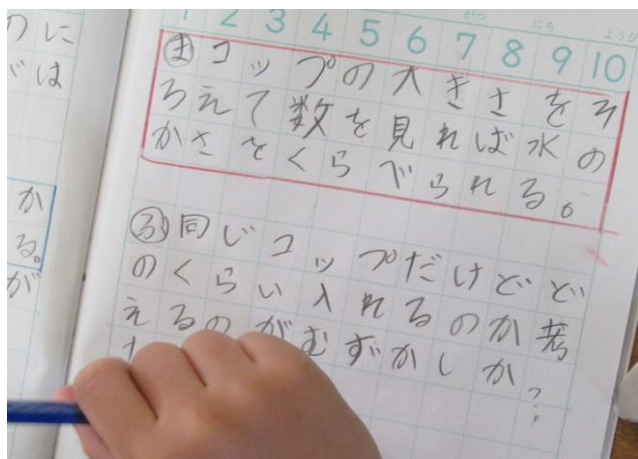 1 2 3 4 5 6 7 8 9 10
がつ にち ようび
のに
は
か
る。
が
ま コップの大きさをそ
ろえて数を見れば水の
かさをくらべられる。
ふ 同じコップだけどど
のくらい入れるのか考
えるのがむずかしか
?